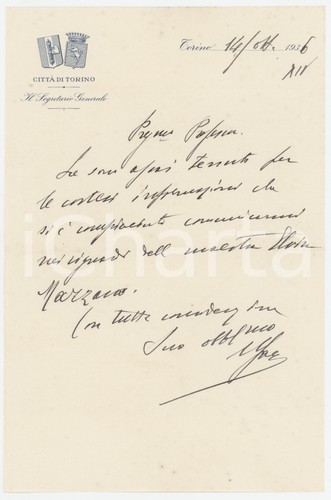 CITTÀ DI TORINO
Il Segretario Generale
Torino 14/ott. 1936
XIV
Pregmo Professore
Le sono assai tenuto per
le cortesi informazioni che
si è compiaciuto comunicarmi
nei riguardi della maestra
Marzano.
Con tutta considerazione
Suo obbl.mo
iCharta